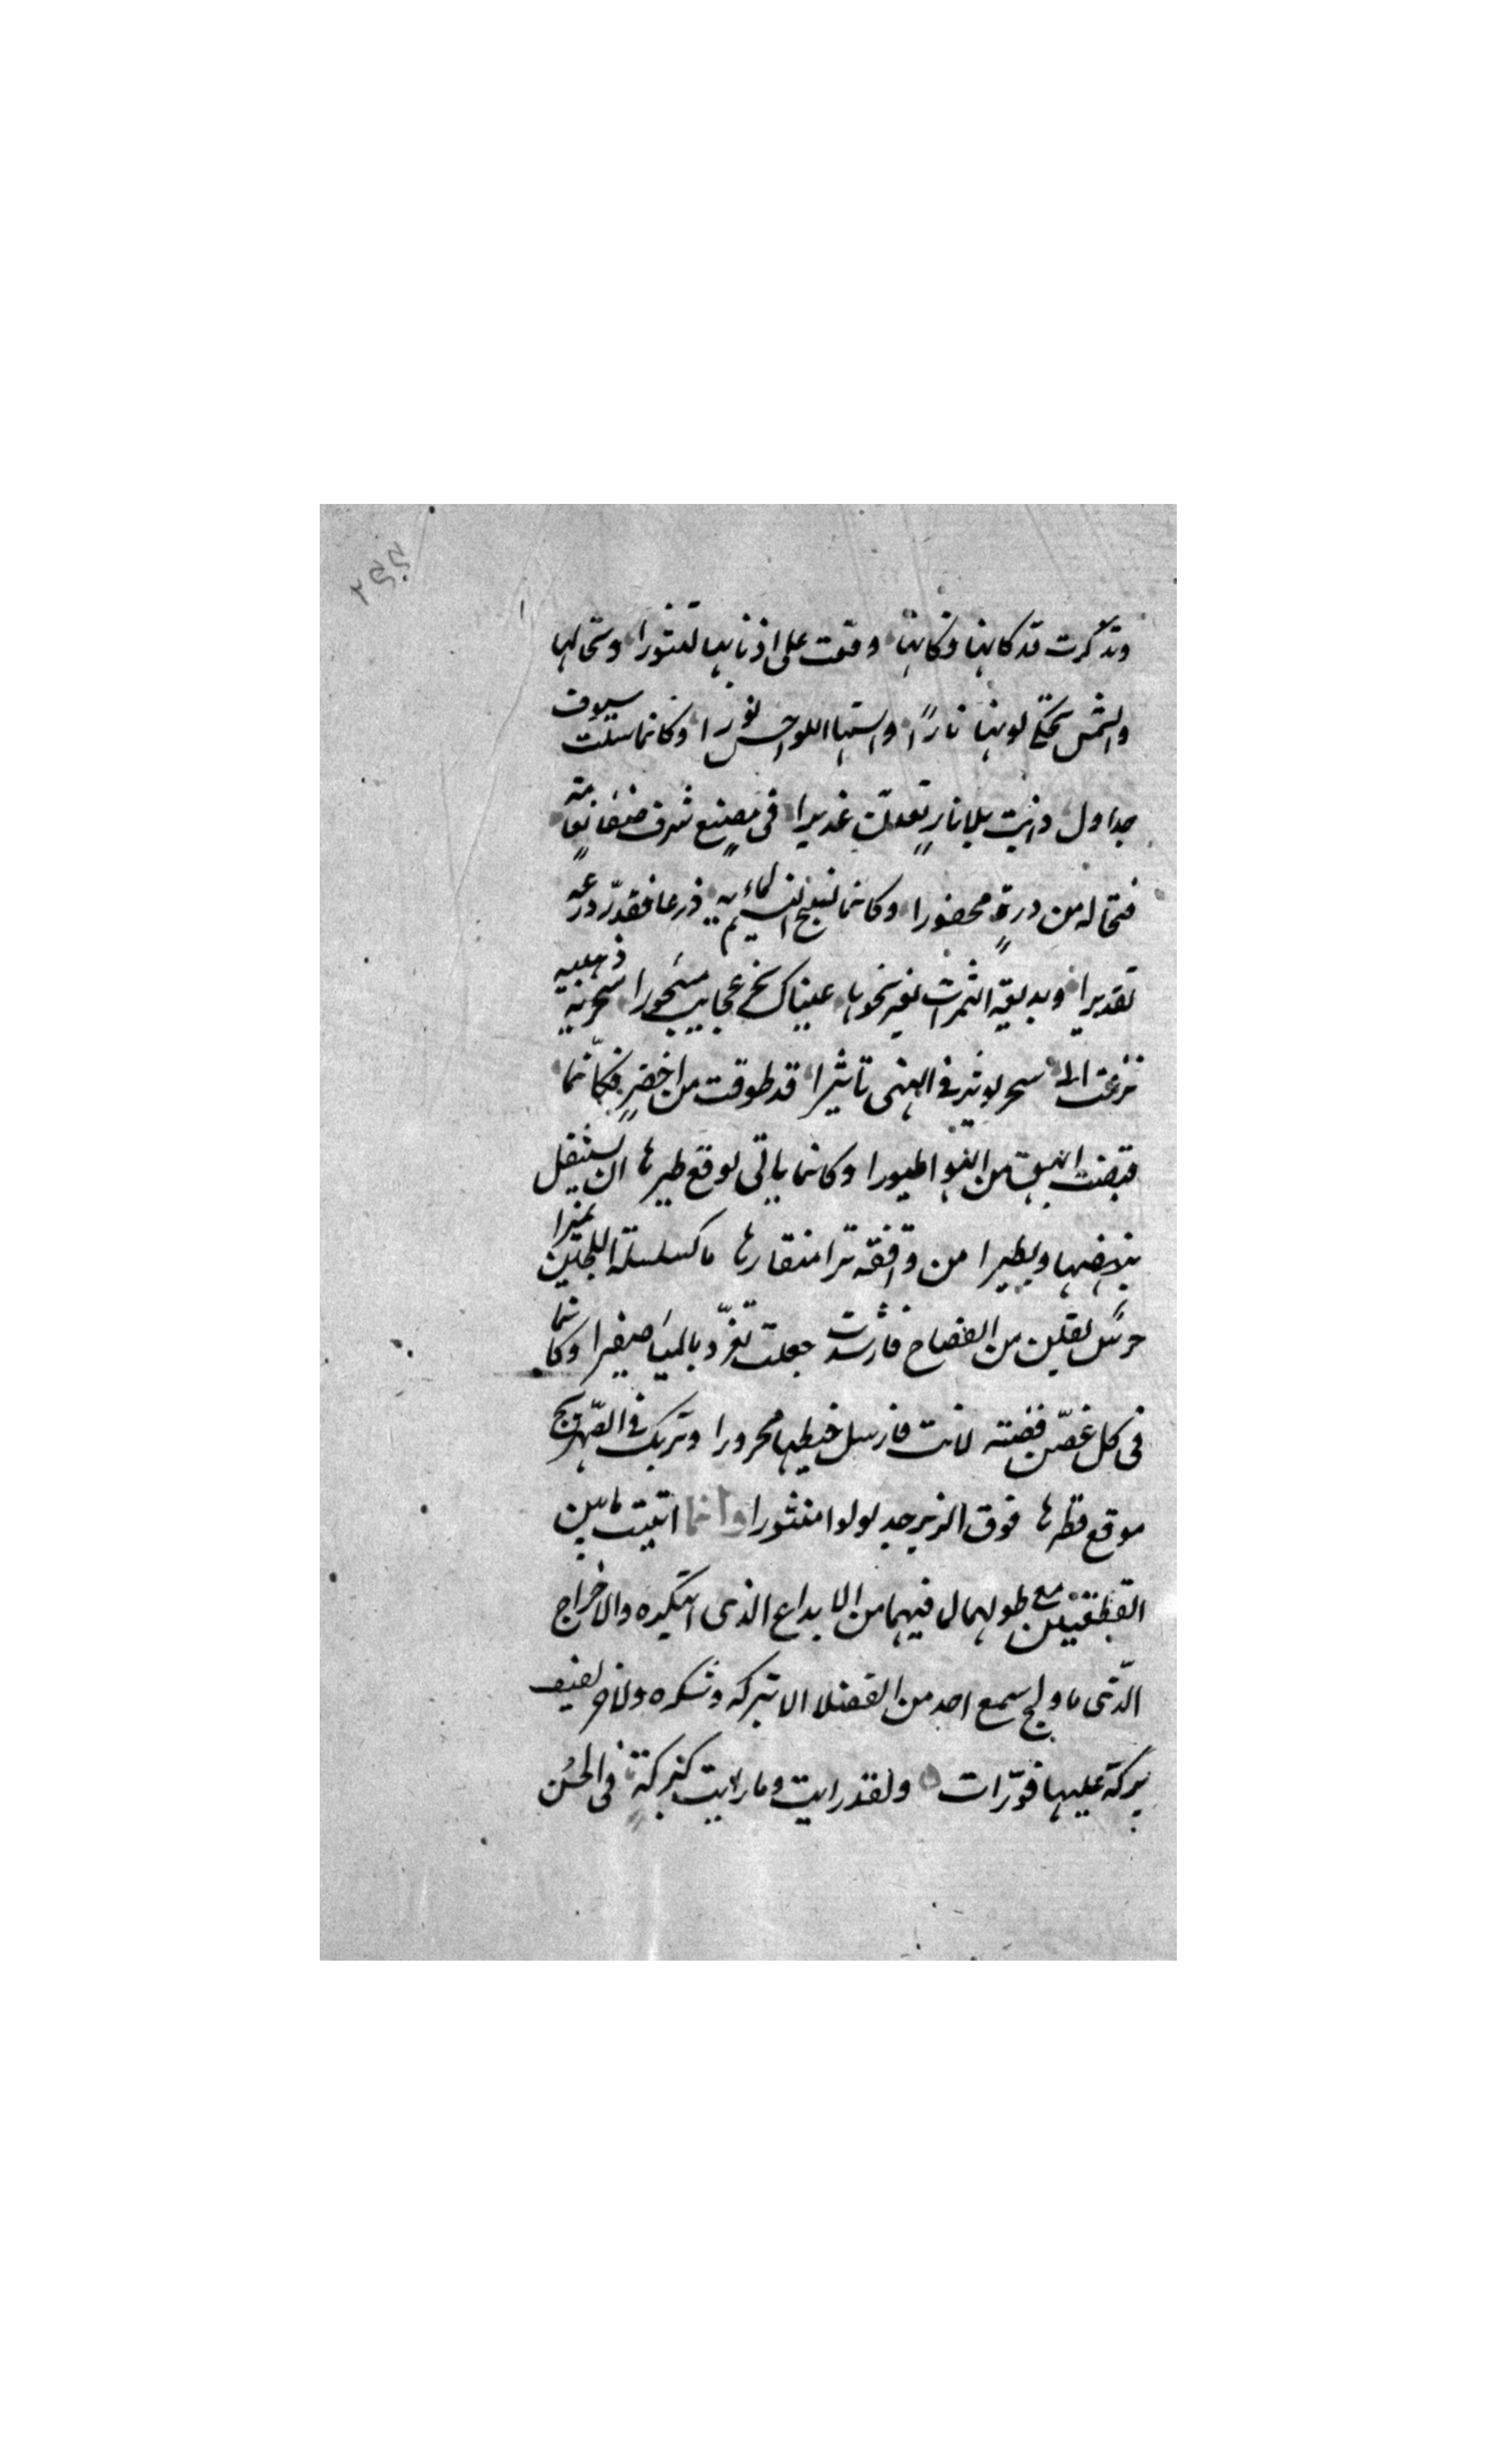 ٢٩٩
وتذكرت فتكاتها فكانها وقعت على اذنابها لتثورا وتخالها
والشمس تحكى لونها نارًا والسنها اللواحس نورا وكانما سلت سيوف
جداول ذابت بلا نارٍ فعدن غديرا فى مصنعٍ شرف
فتخاله من درةٍ محفورا وكانما نسج النسيم لمائه ذرعا فقدر درعه
تقديرا وبديعة الثمرات نحوها عيناك بحر عجايب مسجورا شجرية ذهبية
نزعت الى سحر يوثر فى النهى تاثيرا قد طوقت من اخضرٍ فكانما
قبضت بهن من الفضا طيورا وكانما يابى لوقع طيرها ان يستقل
بنهضها ويطيرا من واقفة ترا منقارها ما كسلسلة اللجين نميرا
خرس تعلن من الفصاح فان شدت جعلت تغرد بالمياه صفيرا وكانما
فى كل غصن فضة لانت فارسل خيطها مجرورا وتريك فى الصهريج
موقع قطرها فوق الزبرجد لولوا منثورا وانما اتيت هاتين
القطعتين مع طولهما لما فيهما من الابداع الذى ابتكره والاختراع
الذى ما ولج سمع احد من الفضلا الا تبركه وشكره ولاخر يصف
بركة عليها فوّرات ولقد رايت وما رايت كبركة فى الحسن